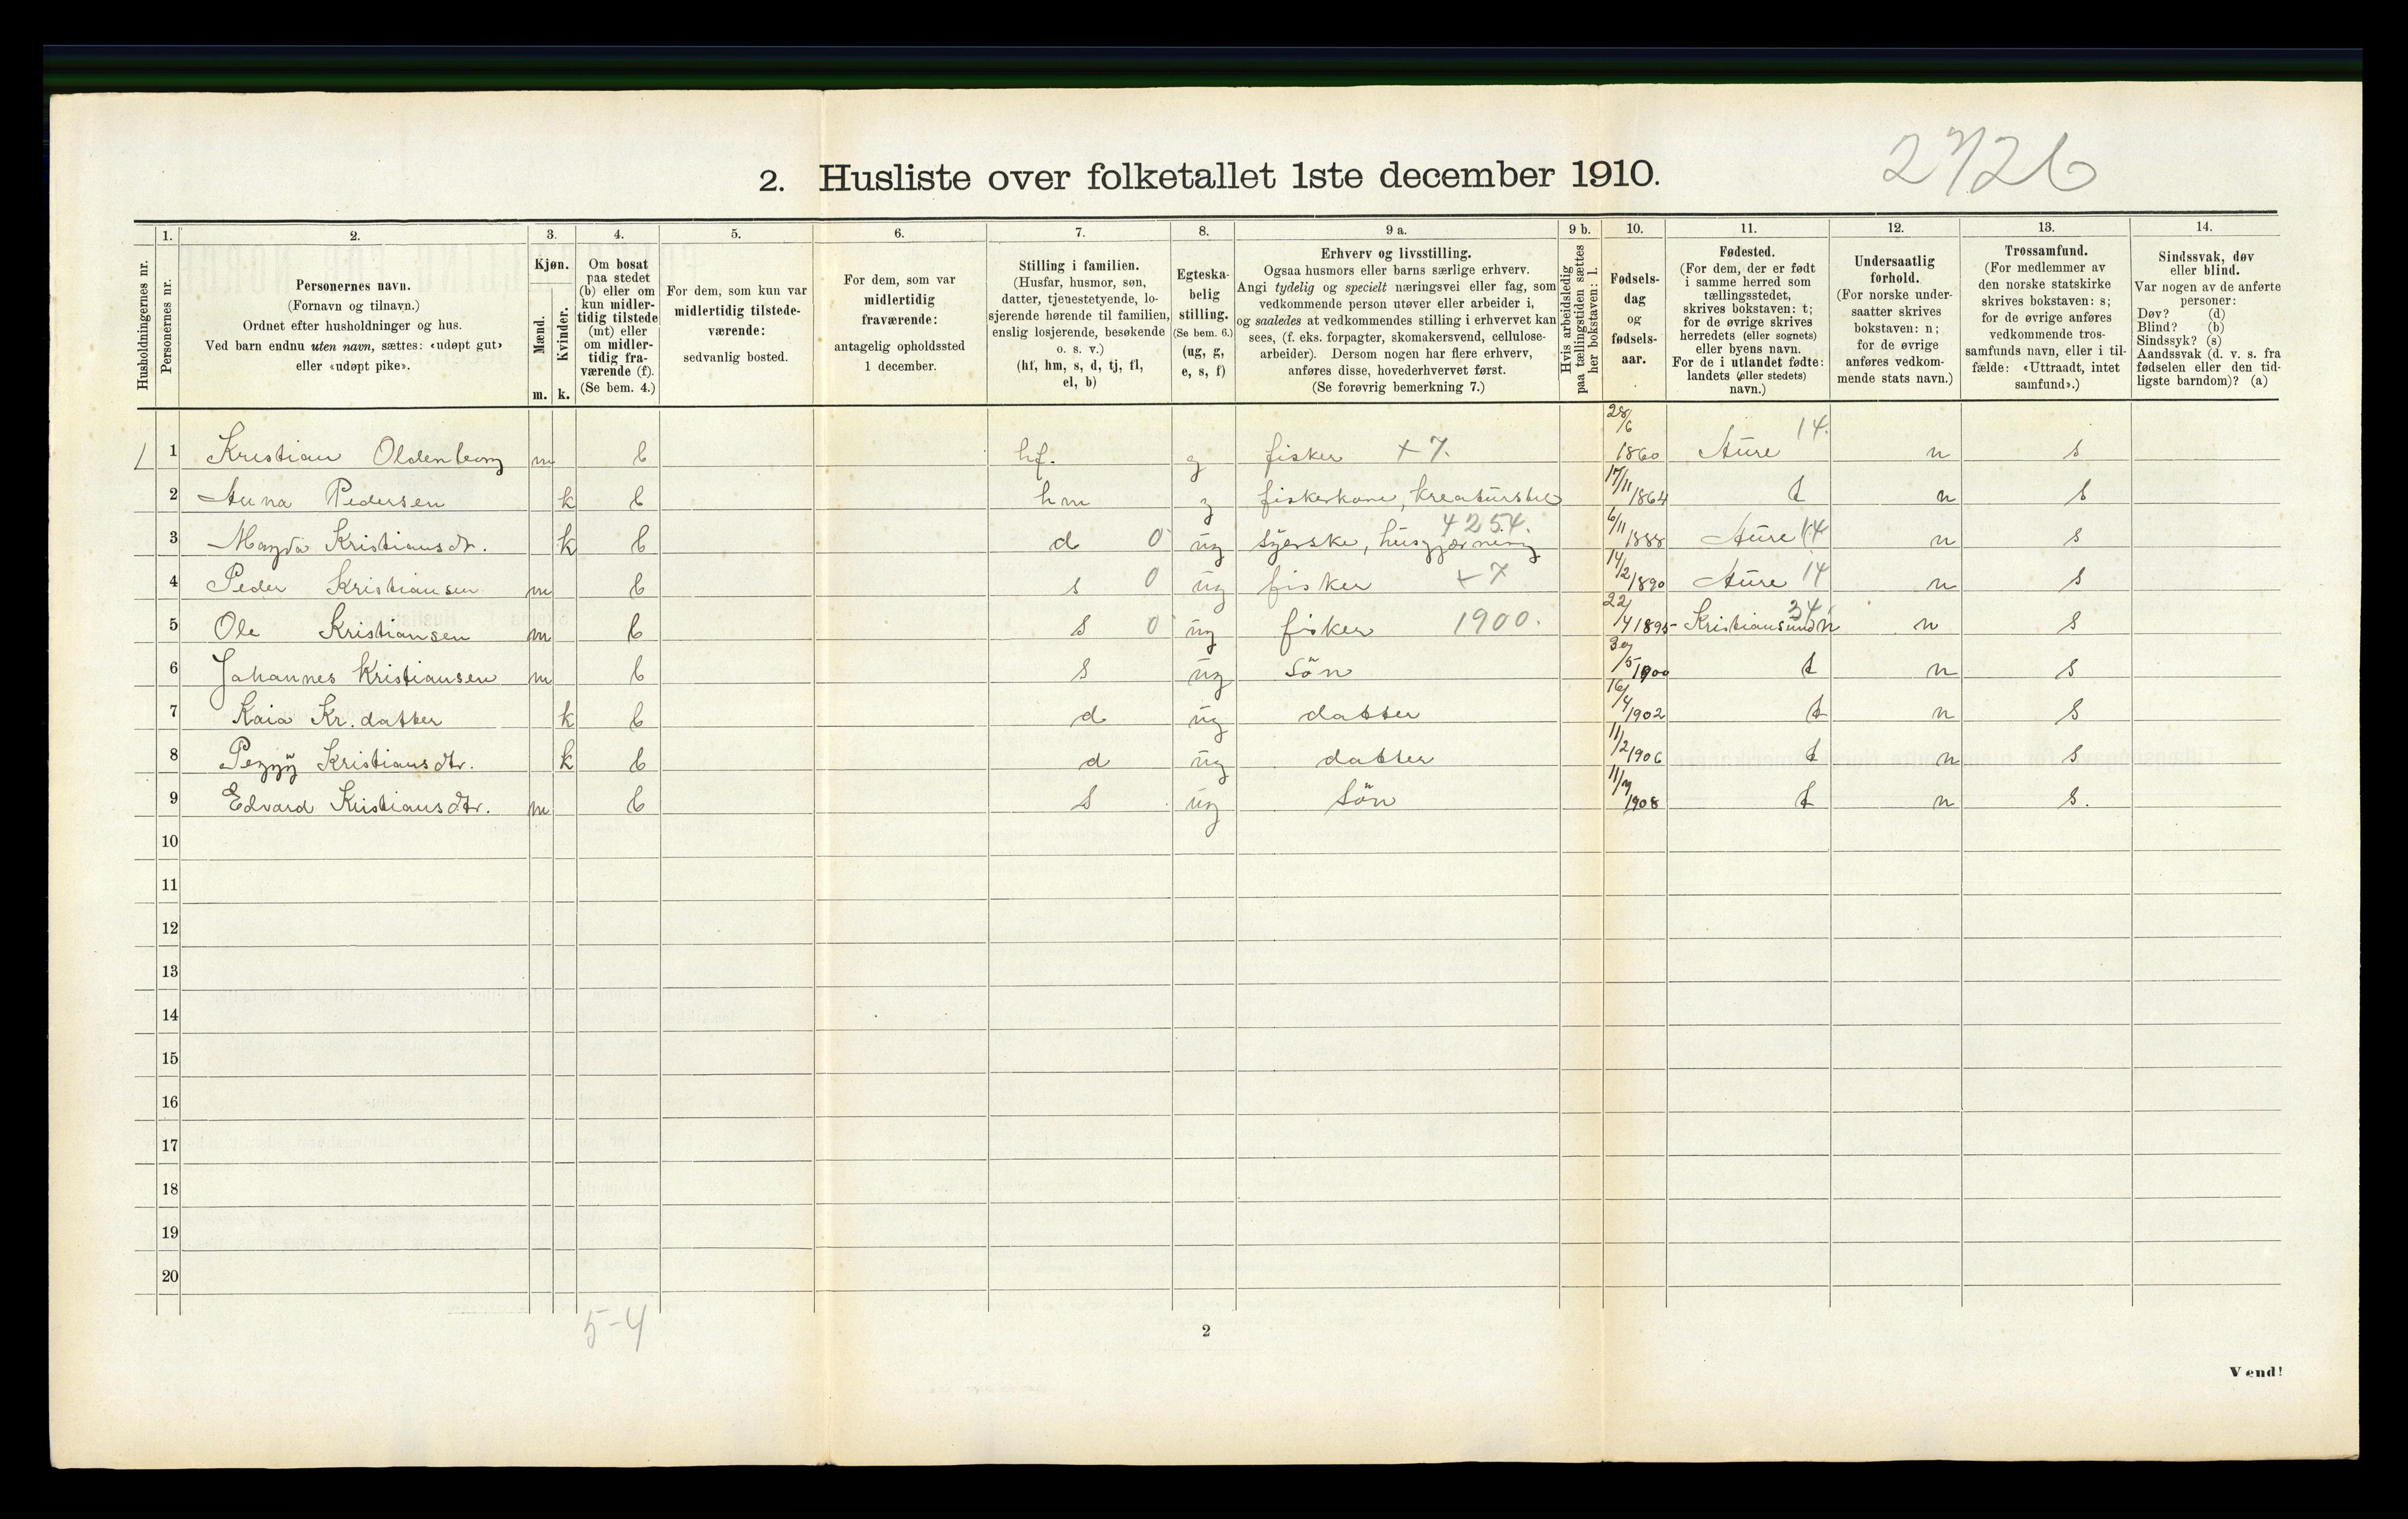 2726
2. Husliste over folketallet 1ste december 1910.
Husholdningernes nr.
1. Personernes nr.
2. Personernes navn.
(Fornavn og tilnavn.)
Ordnet efter husholdninger og hus.
Ved barn endnu uten navn, sættes: «udøpt gut»
eller «udøpt pike».
3. Kjøn.
Mænd. m.
Kvinder. k.
4. Om bosat
paa stedet
(b) eller om
kun midler-
tidig tilstede
(mt) eller
om midler-
tidig fra-
værende (f).
(Se bem. 4.)
5. For dem, som kun var
midlertidig tilstede-
værende:
sedvanlig bosted.
6. For dem, som var
midlertidig
fraværende:
antagelig opholdssted
1 december.
7. Stilling i familien.
(Husfar, husmor, søn,
datter, tjenestetyende, lo-
sjerende hørende til familien,
enslig losjerende, besøkende
o. s. v.)
(hf, hm, s, d, tj, fl,
el, b)
8. Egteska-
belig
stilling.
(Se bem. 6.)
(ug, g,
e, s, f)
9 a. Erhverv og livsstilling.
Ogsaa husmors eller barns særlige erhverv.
Angi tydelig og specielt næringsvei eller fag, som
vedkommende person utøver eller arbeider i,
og saaledes at vedkommendes stilling i erhvervet kan
sees, (f. eks. forpagter, skomakersvend, cellulose-
arbeider). Dersom nogen har flere erhverv,
anføres disse, hovederhvervet først.
(Se forøvrig bemerkning 7.)
9 b. Hvis arbeidsledig
paa tællingstiden sættes
her bokstaven: l.
10. Fødsels-
dag
og
fødsels-
aar.
11. Fødested.
(For dem, der er født
i samme herred som
tællingsstedet,
skrives bokstaven: t;
for de øvrige skrives
herredets (eller sognets)
eller byens navn.
For de i utlandet fødte:
landets (eller stedets)
navn.)
12. Undersaatlig
forhold.
(For norske under-
saatter skrives
bokstaven: n;
for de øvrige
anføres vedkom-
mende stats navn.)
13. Trossamfund.
(For medlemmer av
den norske statskirke
skrives bokstaven: s;
for de øvrige anføres
vedkommende tros-
samfunds navn, eller i til-
fælde: «Uttraadt, intet
samfund».)
14. Sindssvak, døv
eller blind.
Var nogen av de anførte
personer:
Døv? (d)
Blind? (b)
Sindssyk? (s)
Aandssvak (d. v. s. fra
fødselen eller den tid-
ligste barndom)? (a)
1 1 Kristian Oldenborg m b hf. g fisker +7. 28/6 1860 Aure 14. n s
2 Anna Pedersen k b hm g fiskerkone, kreaturstel 17/11 1864 t n s
3 Magda Kristiansdr. k b d 0 ug syerske, husgjærning 4254. 6/11 1888 Aure 14 n s
4 Peder Kristiansen m b s 0 ug fisker +7 14/2 1890 Aure 14 n s
5 Ole Kristiansen m b s 0 ug fisker 1900. 22/4 1895 Kristiansund n 34 n s
6 Johannes Kristiansen m b s ug Sön 30/5 1900 t n s
7 Kaia Kr. datter k b d ug datter 16/4 1902 t n s
8 Peggÿ Kristiansdtr. k b d ug datter 11/2 1906 t n s
9 Edvard Kristiansdtr. m b s ug Sön 1908 t n s.
10
11
12
13
14
15
16
17
18
19
20
5-4
2
Vend!